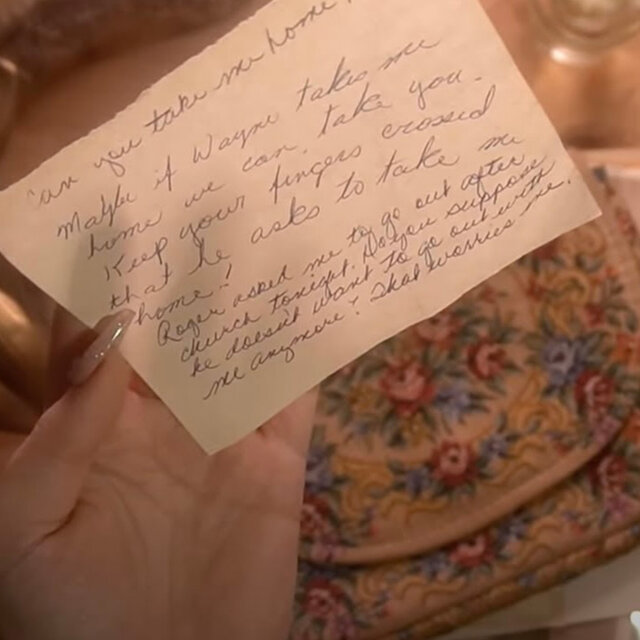 Can you take me home?
Maybe if Wayne takes me
home we can take you.
Keep your fingers crossed
that he asks to take me
home!
Roger asked me to go out after
church tonight. Do you suppose
he doesn't want to go out with
me anymore? That worries me.